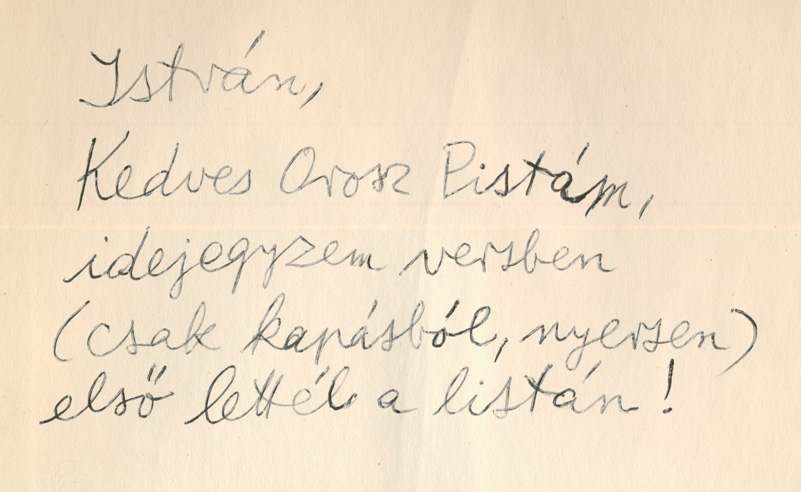 István,
Kedves Orosz Pistám,
idejegyzem versben
(csak kapásból, nyersen)
első lettél a listán!